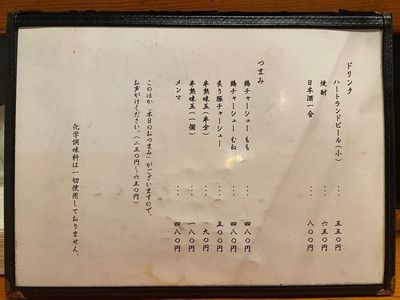 ドリンク
ハートランドビール(小) ... 五五〇円
焼酎 ... 六五〇円
日本酒一合 ... 八〇〇円
つまみ
鶏チャーシュー もも ... 四八〇円
鶏チャーシュー むね ... 四八〇円
炙り豚チャーシュー ... 五〇〇円
半熟味玉(半分) ... 九〇円
半熟味玉(一個) ... 一八〇円
メンマ ... 四八〇円
このほか「本日のおつまみ」がございますので、
お声がけください。(二五〇円〜六五〇円)
化学調味料は一切使用しておりません。